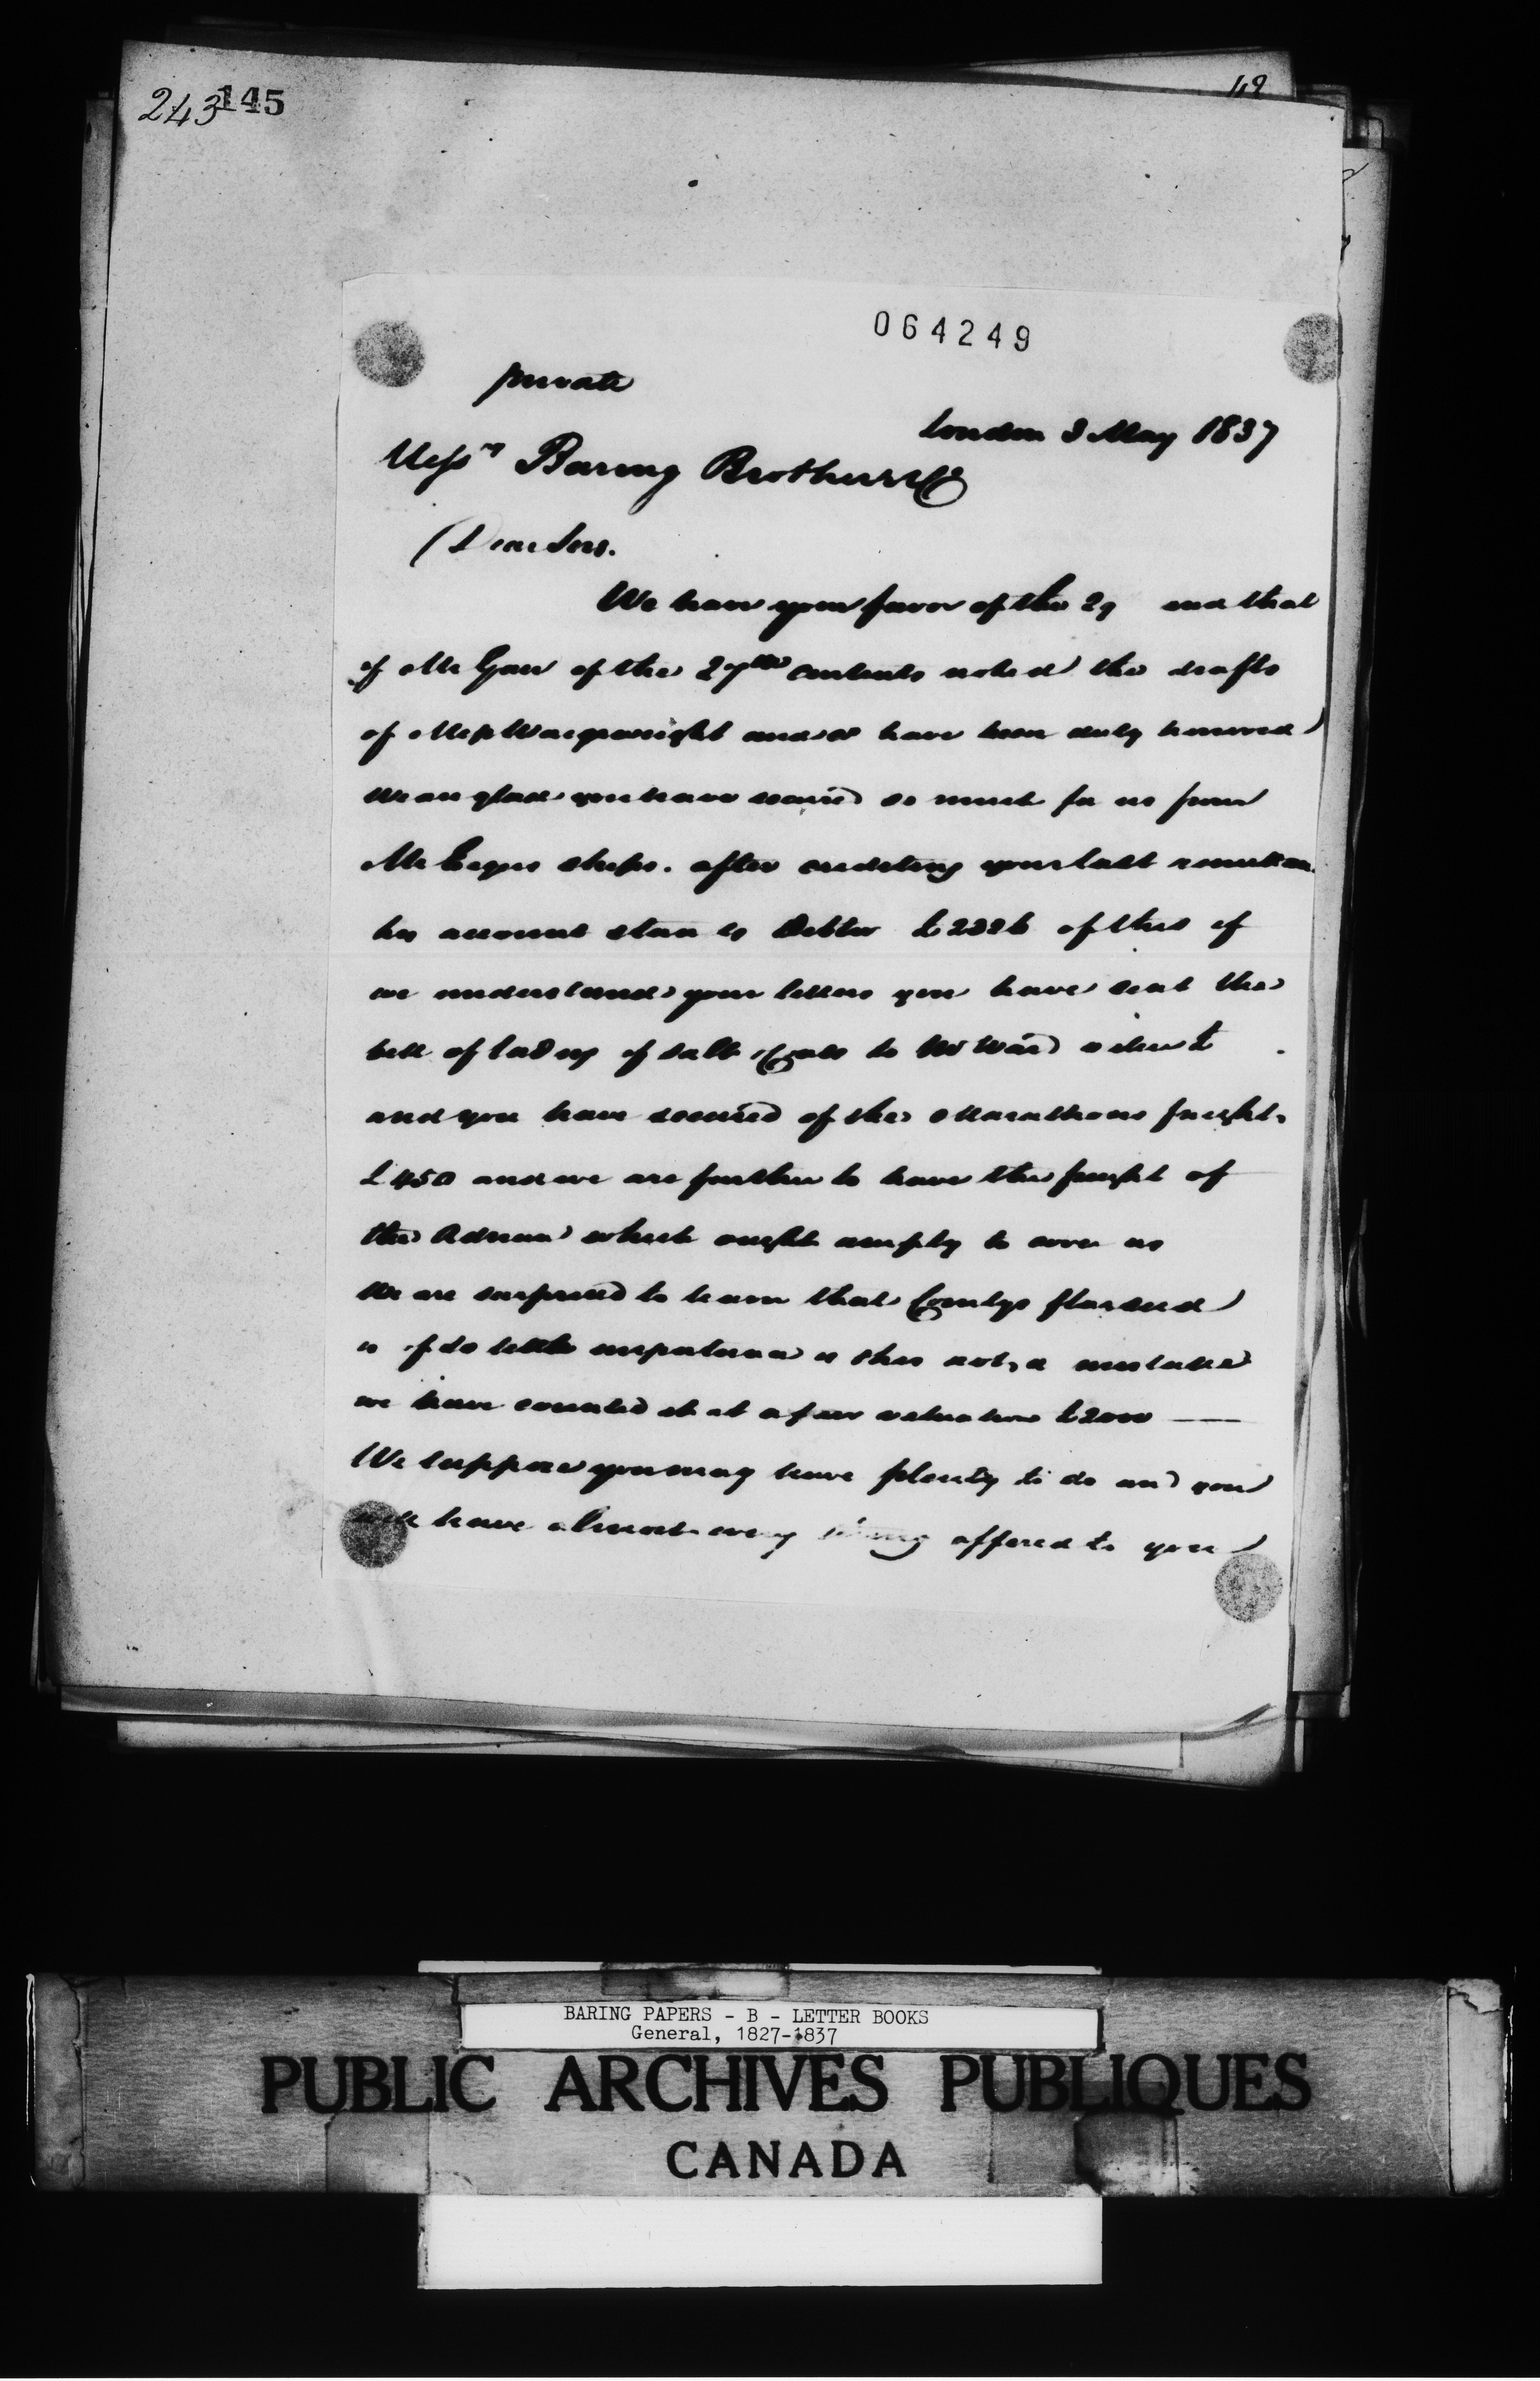 243 145
064249
private
London 3 May 1837
Messrs Baring Brothers & Co
Dear Sirs.
We have your favor of the 29 and that
of Mr Gair of the 27th contents noted the drafts
of Mess Waignwright and have been duly honored
We are glad you have secured so much for us from
Mr ships. after crediting your last remittance
his account stands Debtor £ of this if
we understand your letters you have sent the
bill of lading of salt & Coals to Mr Ward value £
and you have secured of the Marathons freight
£450 and we are further to have the freight of
the Adrian which ought amply to cover us
We are surprised to learn that Comlys flaxseed
is of so little importance is this not a mistake
we have counted it at a fair valuation £2000
We suppose you may have plenty to do and you
will have almost every thing offered to you
BARING PAPERS - B - LETTER BOOKS
General, 1827-1837
PUBLIC ARCHIVES PUBLIQUES
CANADA